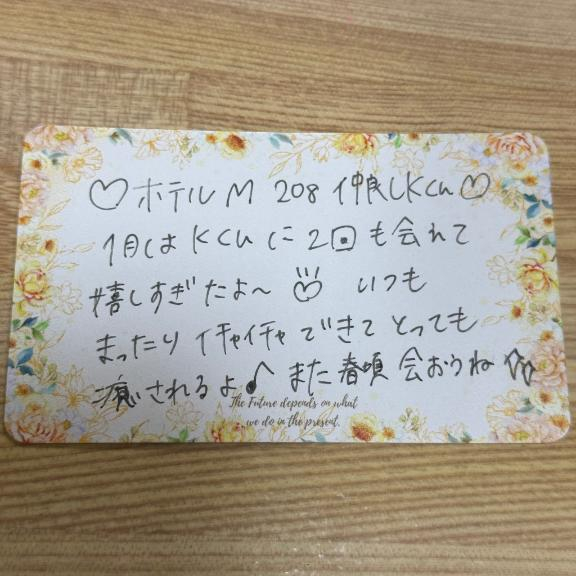 ♡ホテル M 208 仲良しKくん♡
1月は Kくん に 2回 も 会れて
嬉しすぎたよ〜 いつも
まったり イチャイチャ できて とっても
癒されるよ♪ また春頃 会おうね
The Future depends on what
we do in the present.